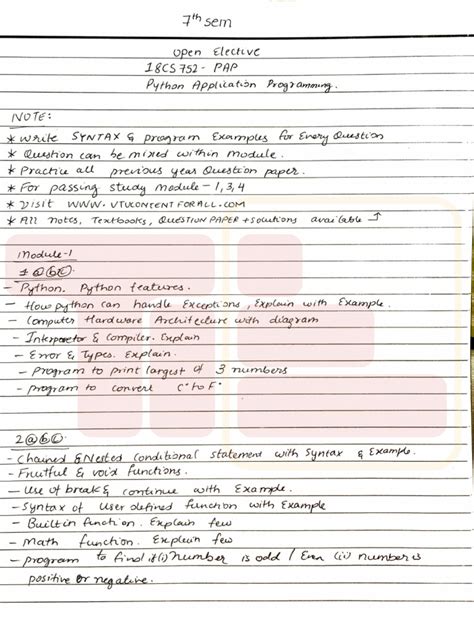 7th sem
Open Elective
18CS752 - PAP
Python Application Programming.
NOTE:
* Write SYNTAX & program Examples for Every Question
* Question can be mixed within module.
* Practice all previous year Question paper.
* For passing study module - 1,3,4
* Visit WWW.VTUCONTENTFORALL.COM
* All notes, Textbooks, QUESTION PAPER + solutions available ↑
Module-1
1 (a)(b)(c).
- Python. Python features.
- How python can handle Exceptions, Explain with Example.
- Computer Hardware Architecture with diagram
- Interpretor & Compiler. Explain
- Error & Types. Explain.
- Program to print largest of 3 numbers
- program to convert C° to F°
2 (a)(b)(c).
- Chained & Nested Conditional statement with Syntax & Example.
- Fruitful & void functions.
- Use of break & continue with Example.
- Syntax of User defined function with Example
- Builtin function. Explain few
- Math function. Explain few
- program to find it (i) number is odd / Even (ii) number is
positive or negative.